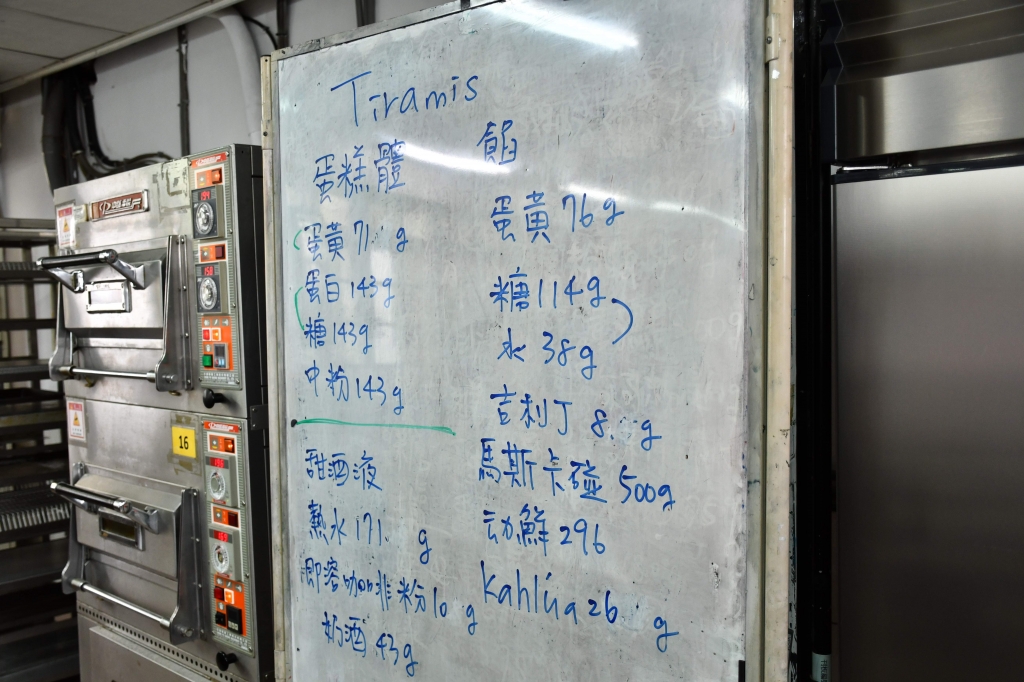 Tiramis
蛋糕體
蛋黃 71. g
蛋白 143g
糖 143g
中粉 143g
甜酒液
熱水 171. g
即溶咖啡粉 10 g
奶酒 43g
餡
蛋黃 76g
糖 114g
水 38g
吉利丁 8. g
馬斯卡碰 500g
动鮮 296
Kahlúa 26 g
16